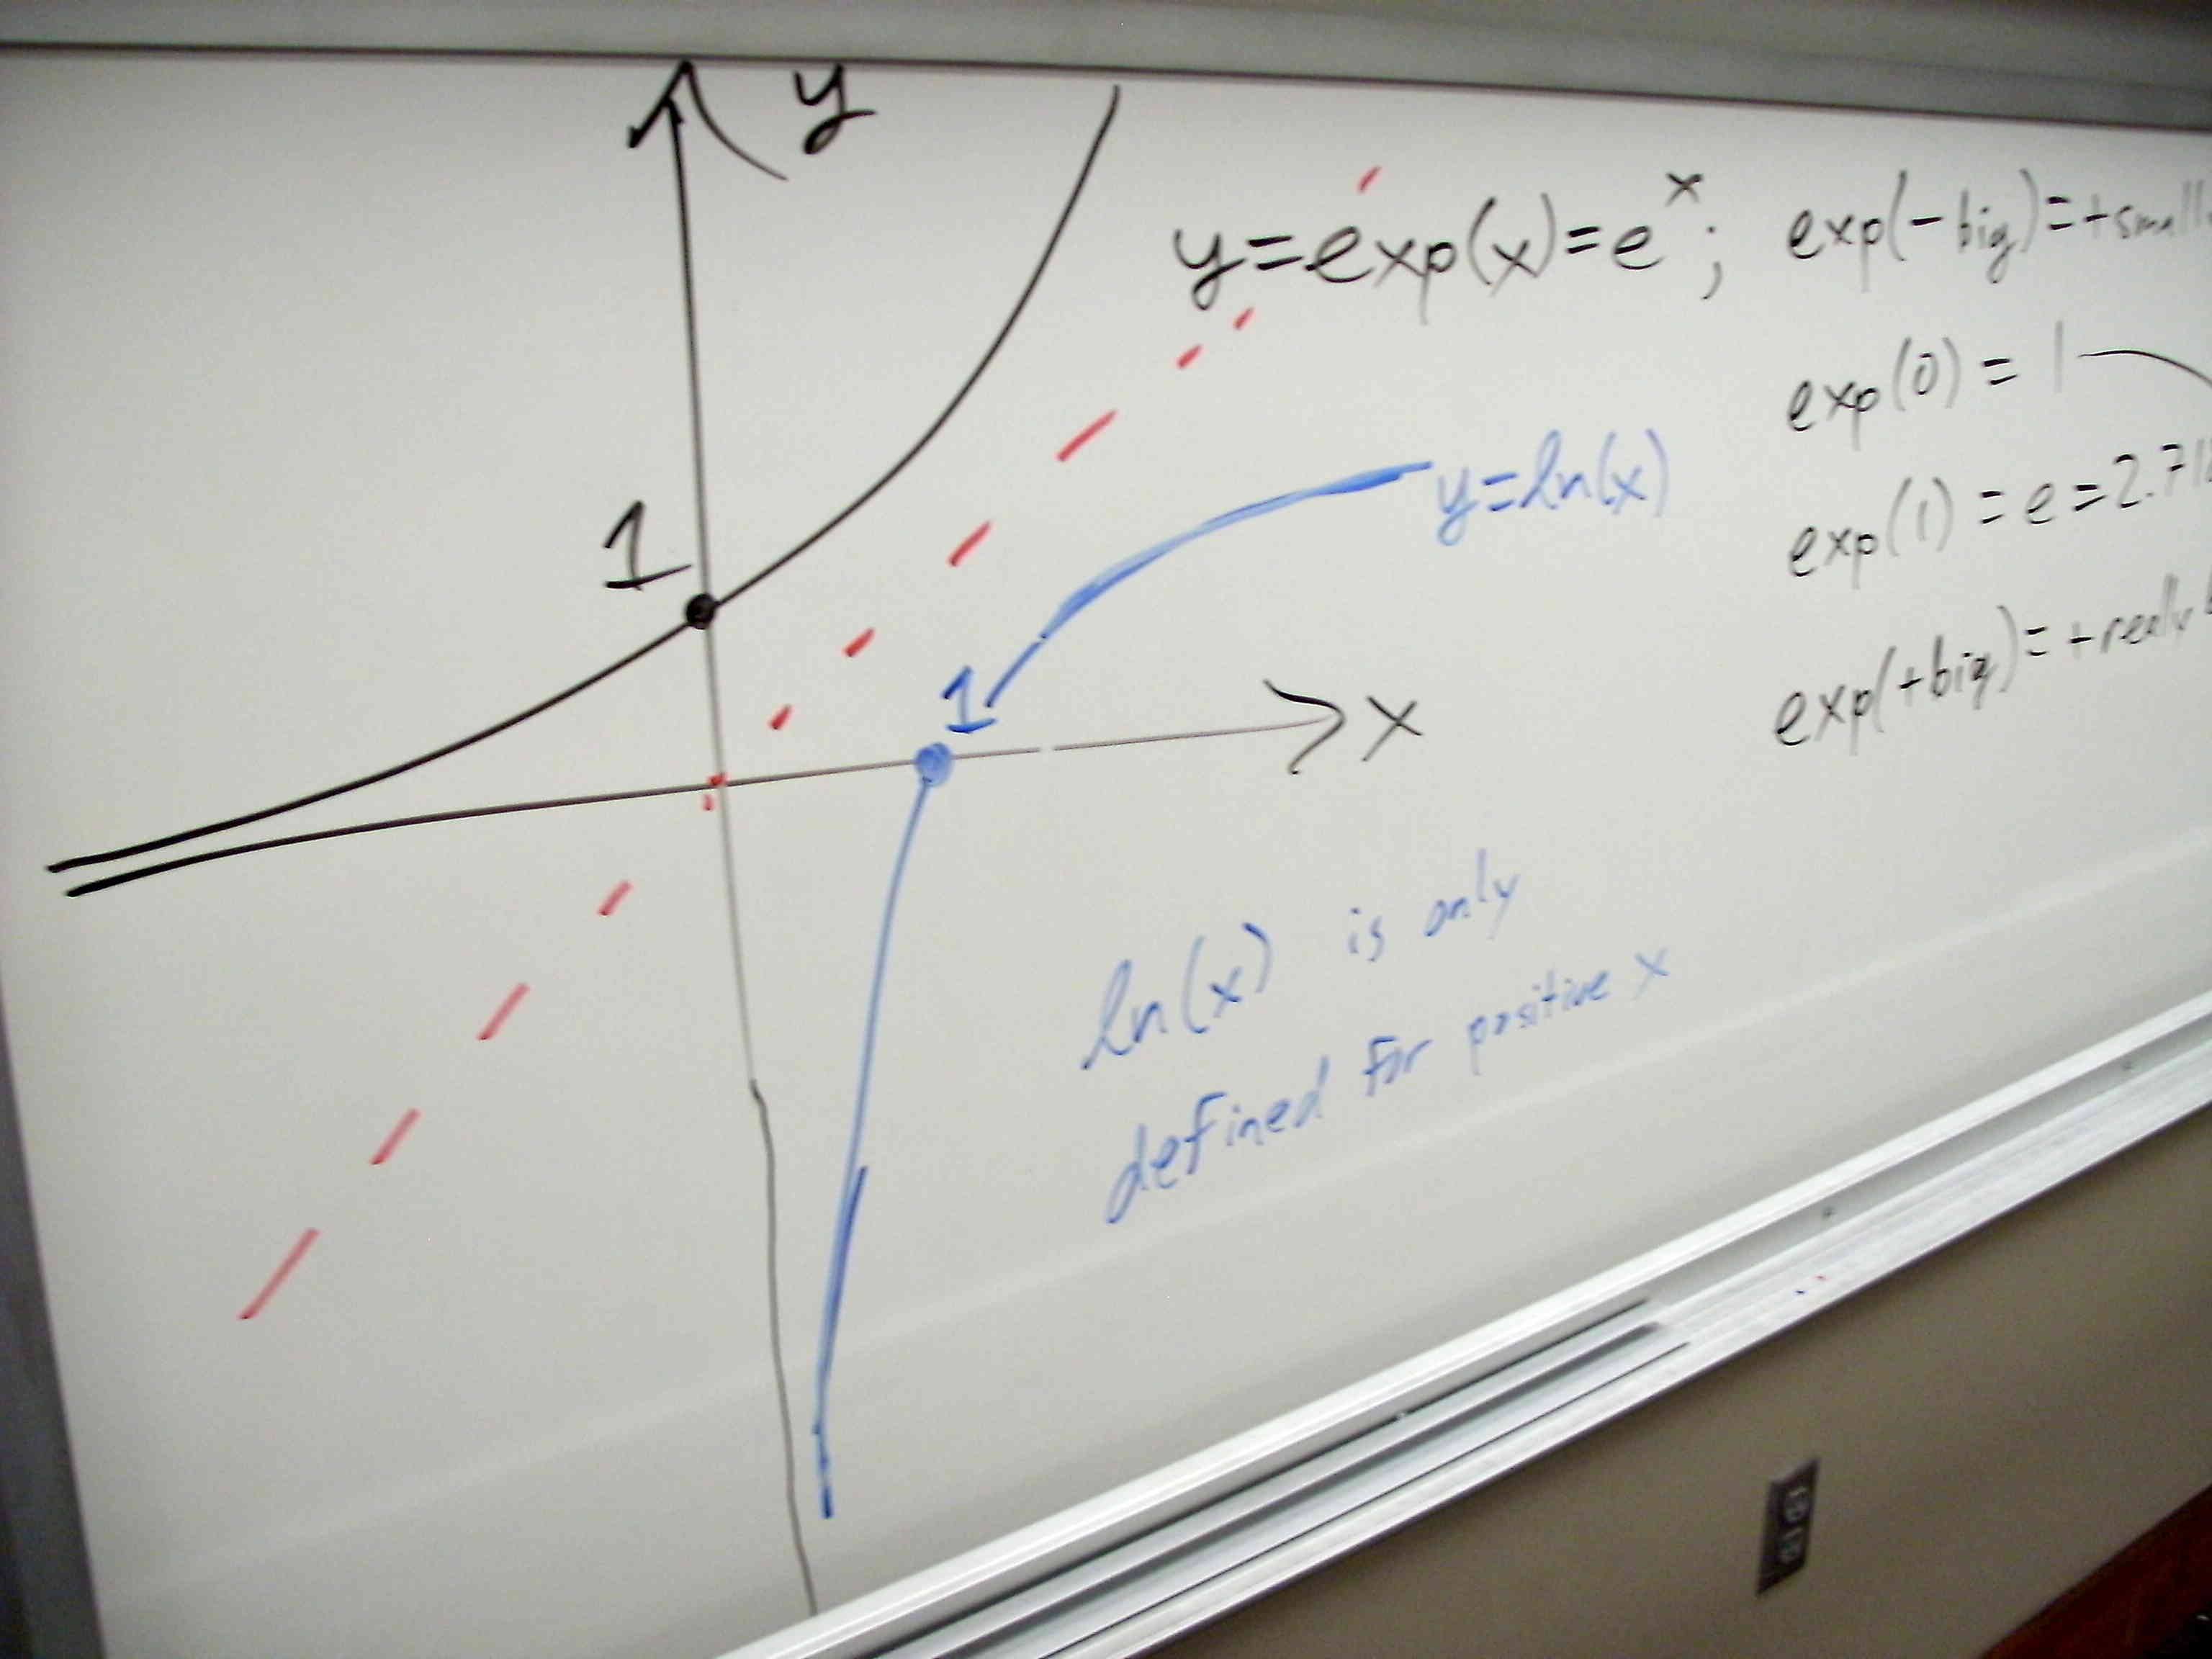 y
y=exp(x)=e^x; exp(-big)=+small
exp(0) = 1
1
y=ln(x)
exp(1) = e = 2.71
1
x
exp(+big)=+really
ln(x) is only
defined for positive x